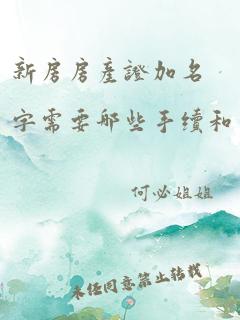 新房房產證加名
字需要哪些手續和
何必姐姐
未经同意禁止转载